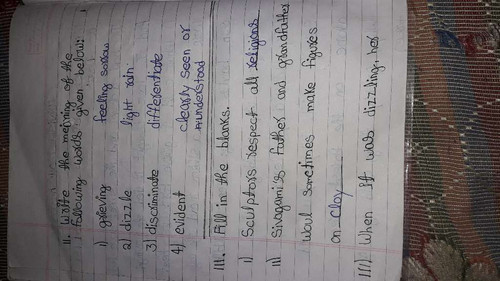 II. Write the meaning of the
following words given below:
1) grieving feeling sorrow
2) dizzle light rain
3) discriminate differentiate
4) evident clearly seen or
understood
III. Fill in the blanks.
i) Sculptors respect all religions
ii) Sivagami's father and grandfather
woul sometimes make figures
on Clay
iii) When it was dizzling, her